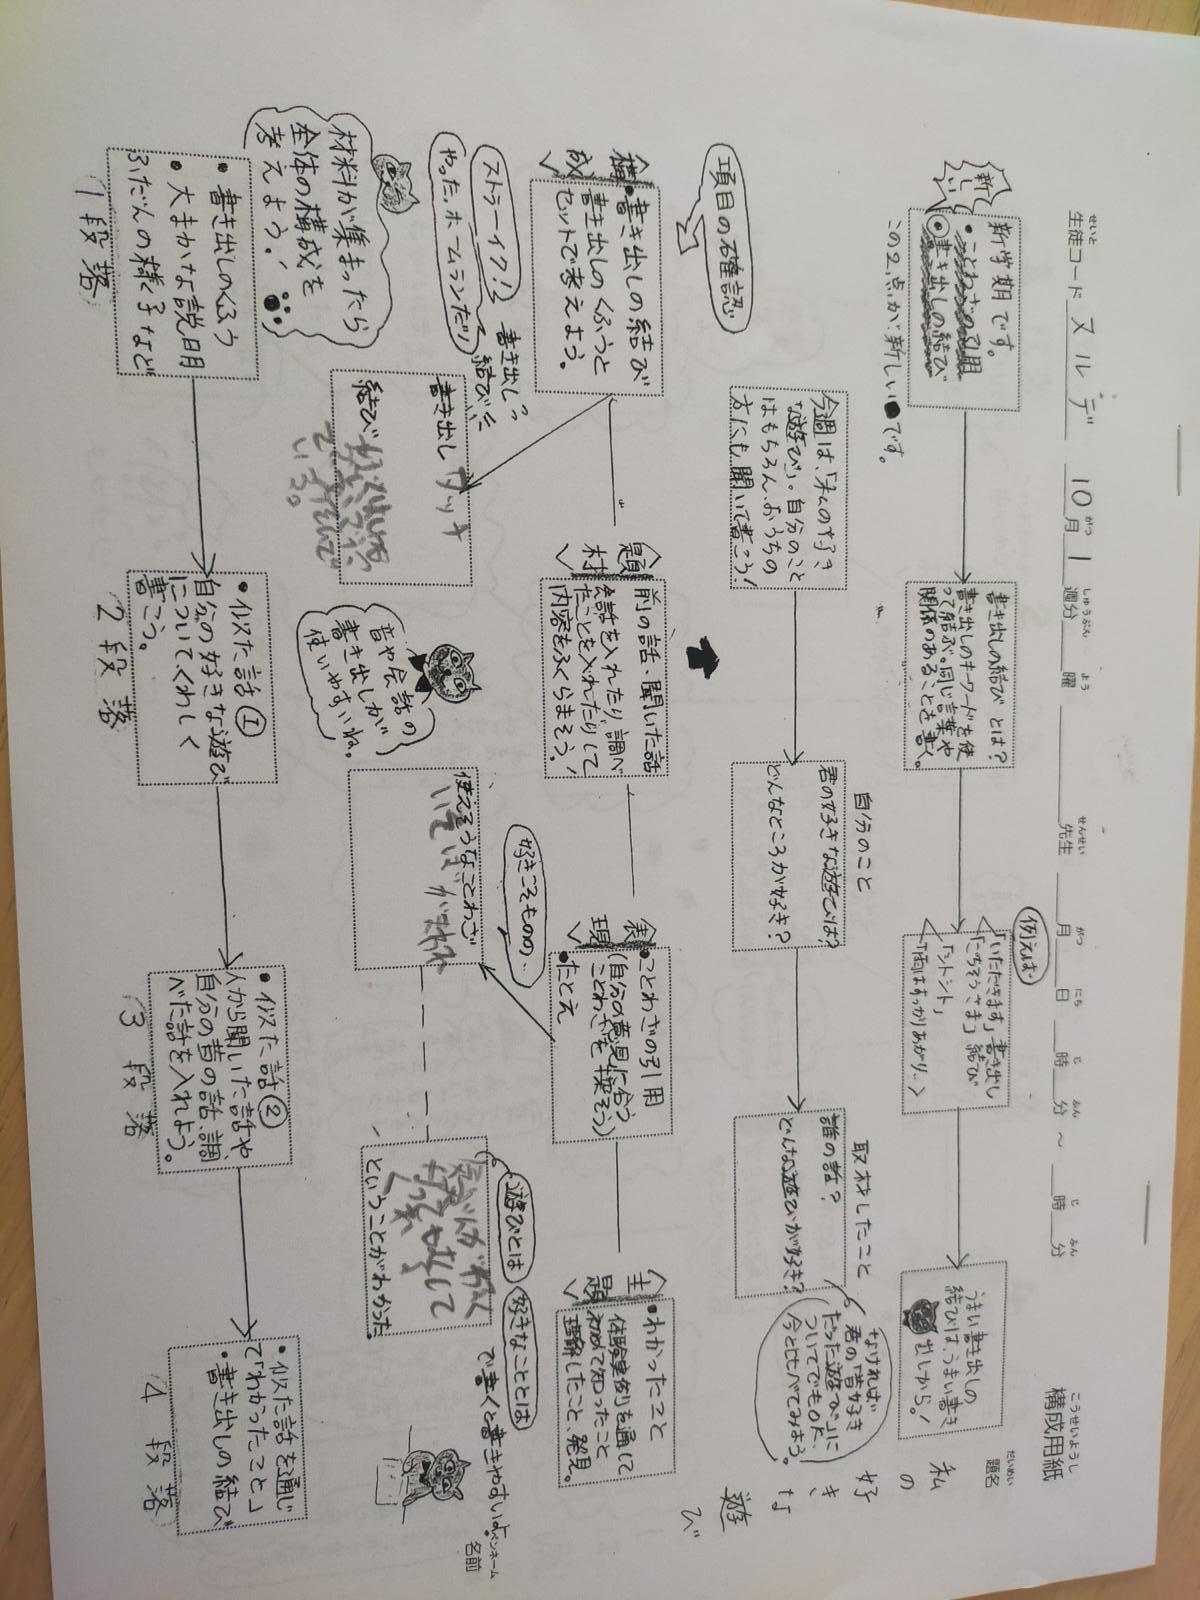 構成用紙
題名
私の好きな遊び
生徒コード ヌルデ 10月1週分 曜 先生 月 日 時 分 ~ 時 分
新しい
新学期です。
この2点が、新しい●です。
書き出しの結び とは?
書き出しのキーワードを使
って結ぶ。同じ言葉や
関係のあることを書く。
例えば
「いただきます」書き出し
「ごちそうさま」結び
「シトシト」
「雨はすっかりあがり…
うまい書き出しの
結びは、うまい書き
出しから!
今週は、「私の好き
な遊び」。自分のこと
はもちろん、おうちの
方にも聞いて書こう!
自分のこと
君の好きな遊びは?
どんなところが好き?
取材したこと
誰の話?
どんな遊びが好き?
なければ
君の「昔好き
だった遊び」に
ついてでもOK、
今と比べてみよう。
項目の確認
構成
・書き出しの結び
書き出しのくふうと
セットで考えよう。
題材
前の話、聞いた話
会話を入れたり、調べ
たことを入れたりして
内容をふくらまそう!
表現
・ことわざの引用
(自分の意見に合う
ことわざを探そう)
・たとえ
主題
・わかったこと
体験実例を通して
わかったこと
理解したこと、発見。
ストラーイク!
やった、ホームランだ!
書き出し
結び
書き出し タッチ
結び
音や会話の
書き出しが
使いやすいね。
好きこそものの、
使えそうなことわざ
いそがばまわれ
遊びとは
好きなこととは
で書くと書きやすいよ
ということがわかった。
ペンネーム
名前
材料が集まったら
全体の構成を
考えよう!
・書き出しのくふう
・大まかな説明
ふだんの様子など
1段落
・似た話①
自分の好きな遊び
についてくわしく
書こう。
2段落
・似た話②
人から聞いた話や
自分の昔の話、調
べた話を入れよう。
3段落
・似た話を通じ
て「わかったこと」
・書き出しの結び
4段落